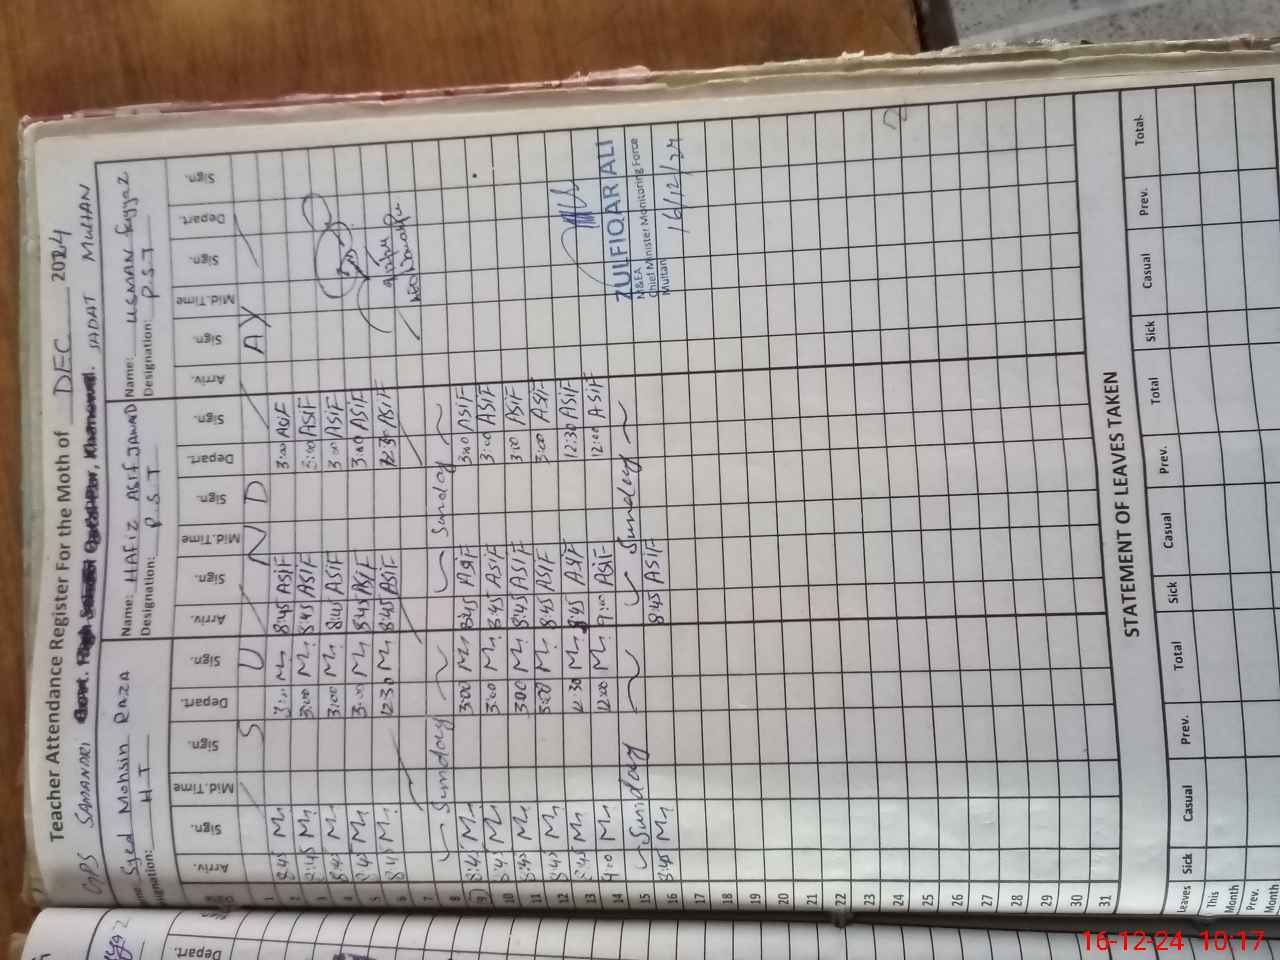 Teacher Attendance Register For the Moth of DEC 2024
GPS SAMANDRI SADAT MULTAN
Name: Syed Mohsin Raza
Designation: H.T
Name: HAFIZ ASIF JAWAD
Designation: P.S.T
Name: USMAN Fayyaz
Designation: P.S.T
Arriv. Sign. Mid.Time Sign. Depart. Sign. Arriv. Sign. Mid.Time Sign. Depart. Sign. Arriv. Sign. Mid.Time Sign. Depart. Sign.
1 S U N D A Y
2 8:45 3:00 8:45 ASIF 3:00 ASIF
3 8:45 3:00 8:45 ASIF 3:00 ASIF
4 8:45 3:00 8:45 ASIF 3:00 ASIF
5 8:45 3:00 8:45 ASIF 3:00 ASIF
6 8:45 12:30 8:45 ASIF 12:30 ASIF
7
8 Sunday Sunday
9 8:45 3:00 8:45 ASIF 3:00 ASIF
10 8:45 3:00 8:45 ASIF 3:00 ASIF
11 8:45 3:00 8:45 ASIF 3:00 ASIF
12 8:45 3:00 8:45 ASIF 3:00 ASIF
13 8:45 12:30 8:45 ASIF 12:30 ASIF
14 9:00 12:00 9:00 ASIF 12:00 ASIF
15 Sunday Sunday
16 8:45 8:45 ASIF
ZULFIQAR ALI
M&EA
Chief Minister Monitoring Force
Multan
16/12/24
17
18
19
20
21
22
23
24
25
26
27
28
29
30
31
STATEMENT OF LEAVES TAKEN
Leaves Sick Casual Prev. Total Sick Casual Prev. Total Sick Casual Prev. Total.
This Month
Prev. Month
Depart.
16-12-24 10:17